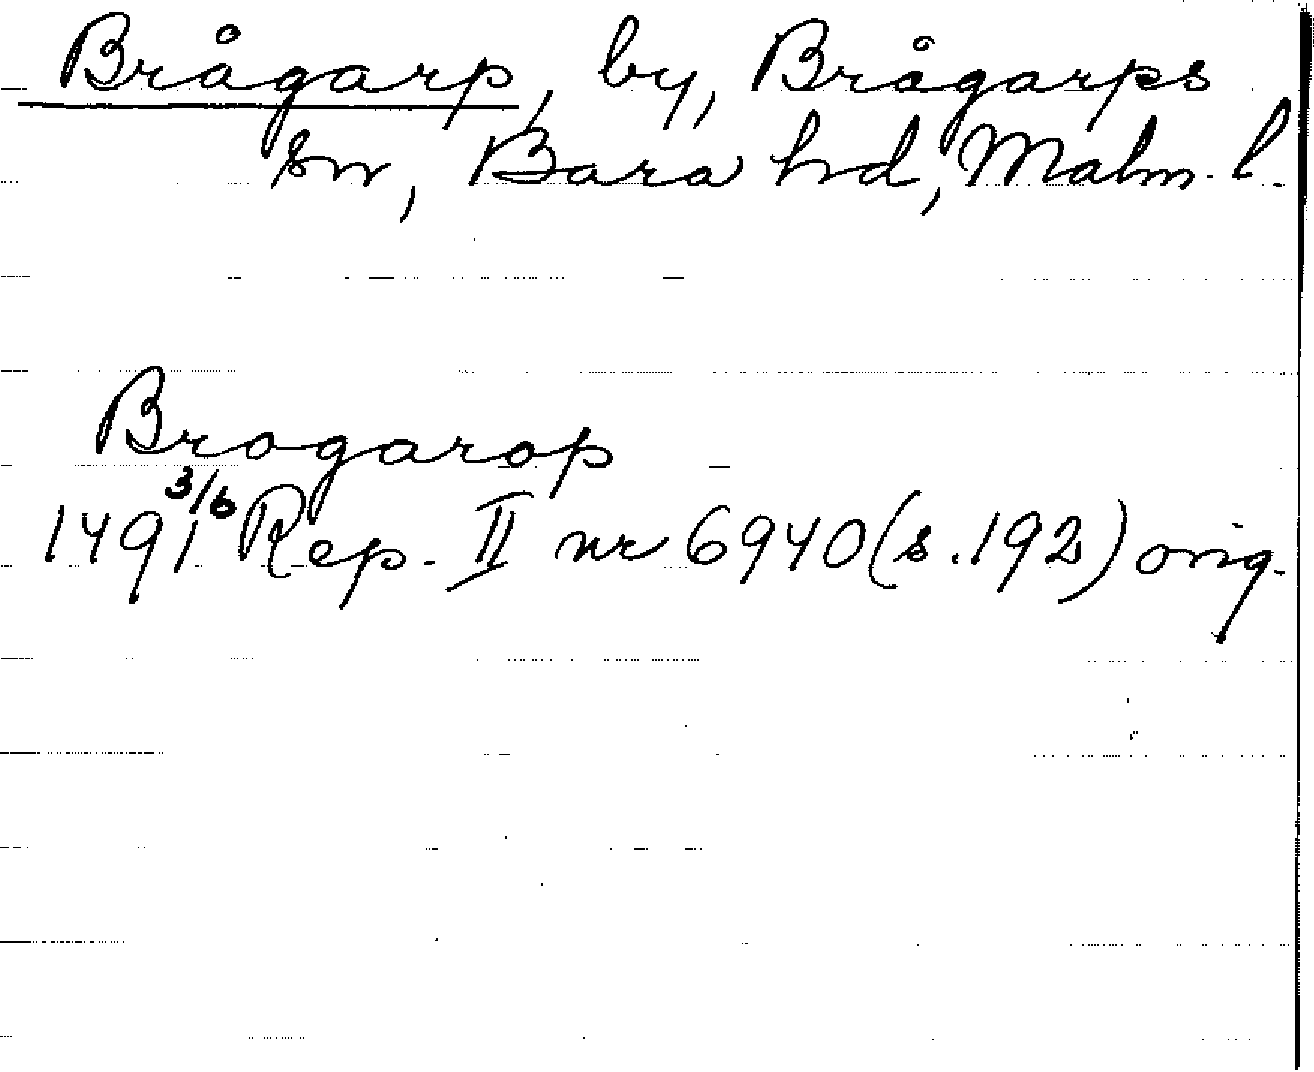 Brågarp, by, Brågarps
sn, Bara hd, Malm. l.
Brogarop
1491 3/6 Rep. II nr 6940 (s. 192) orig.